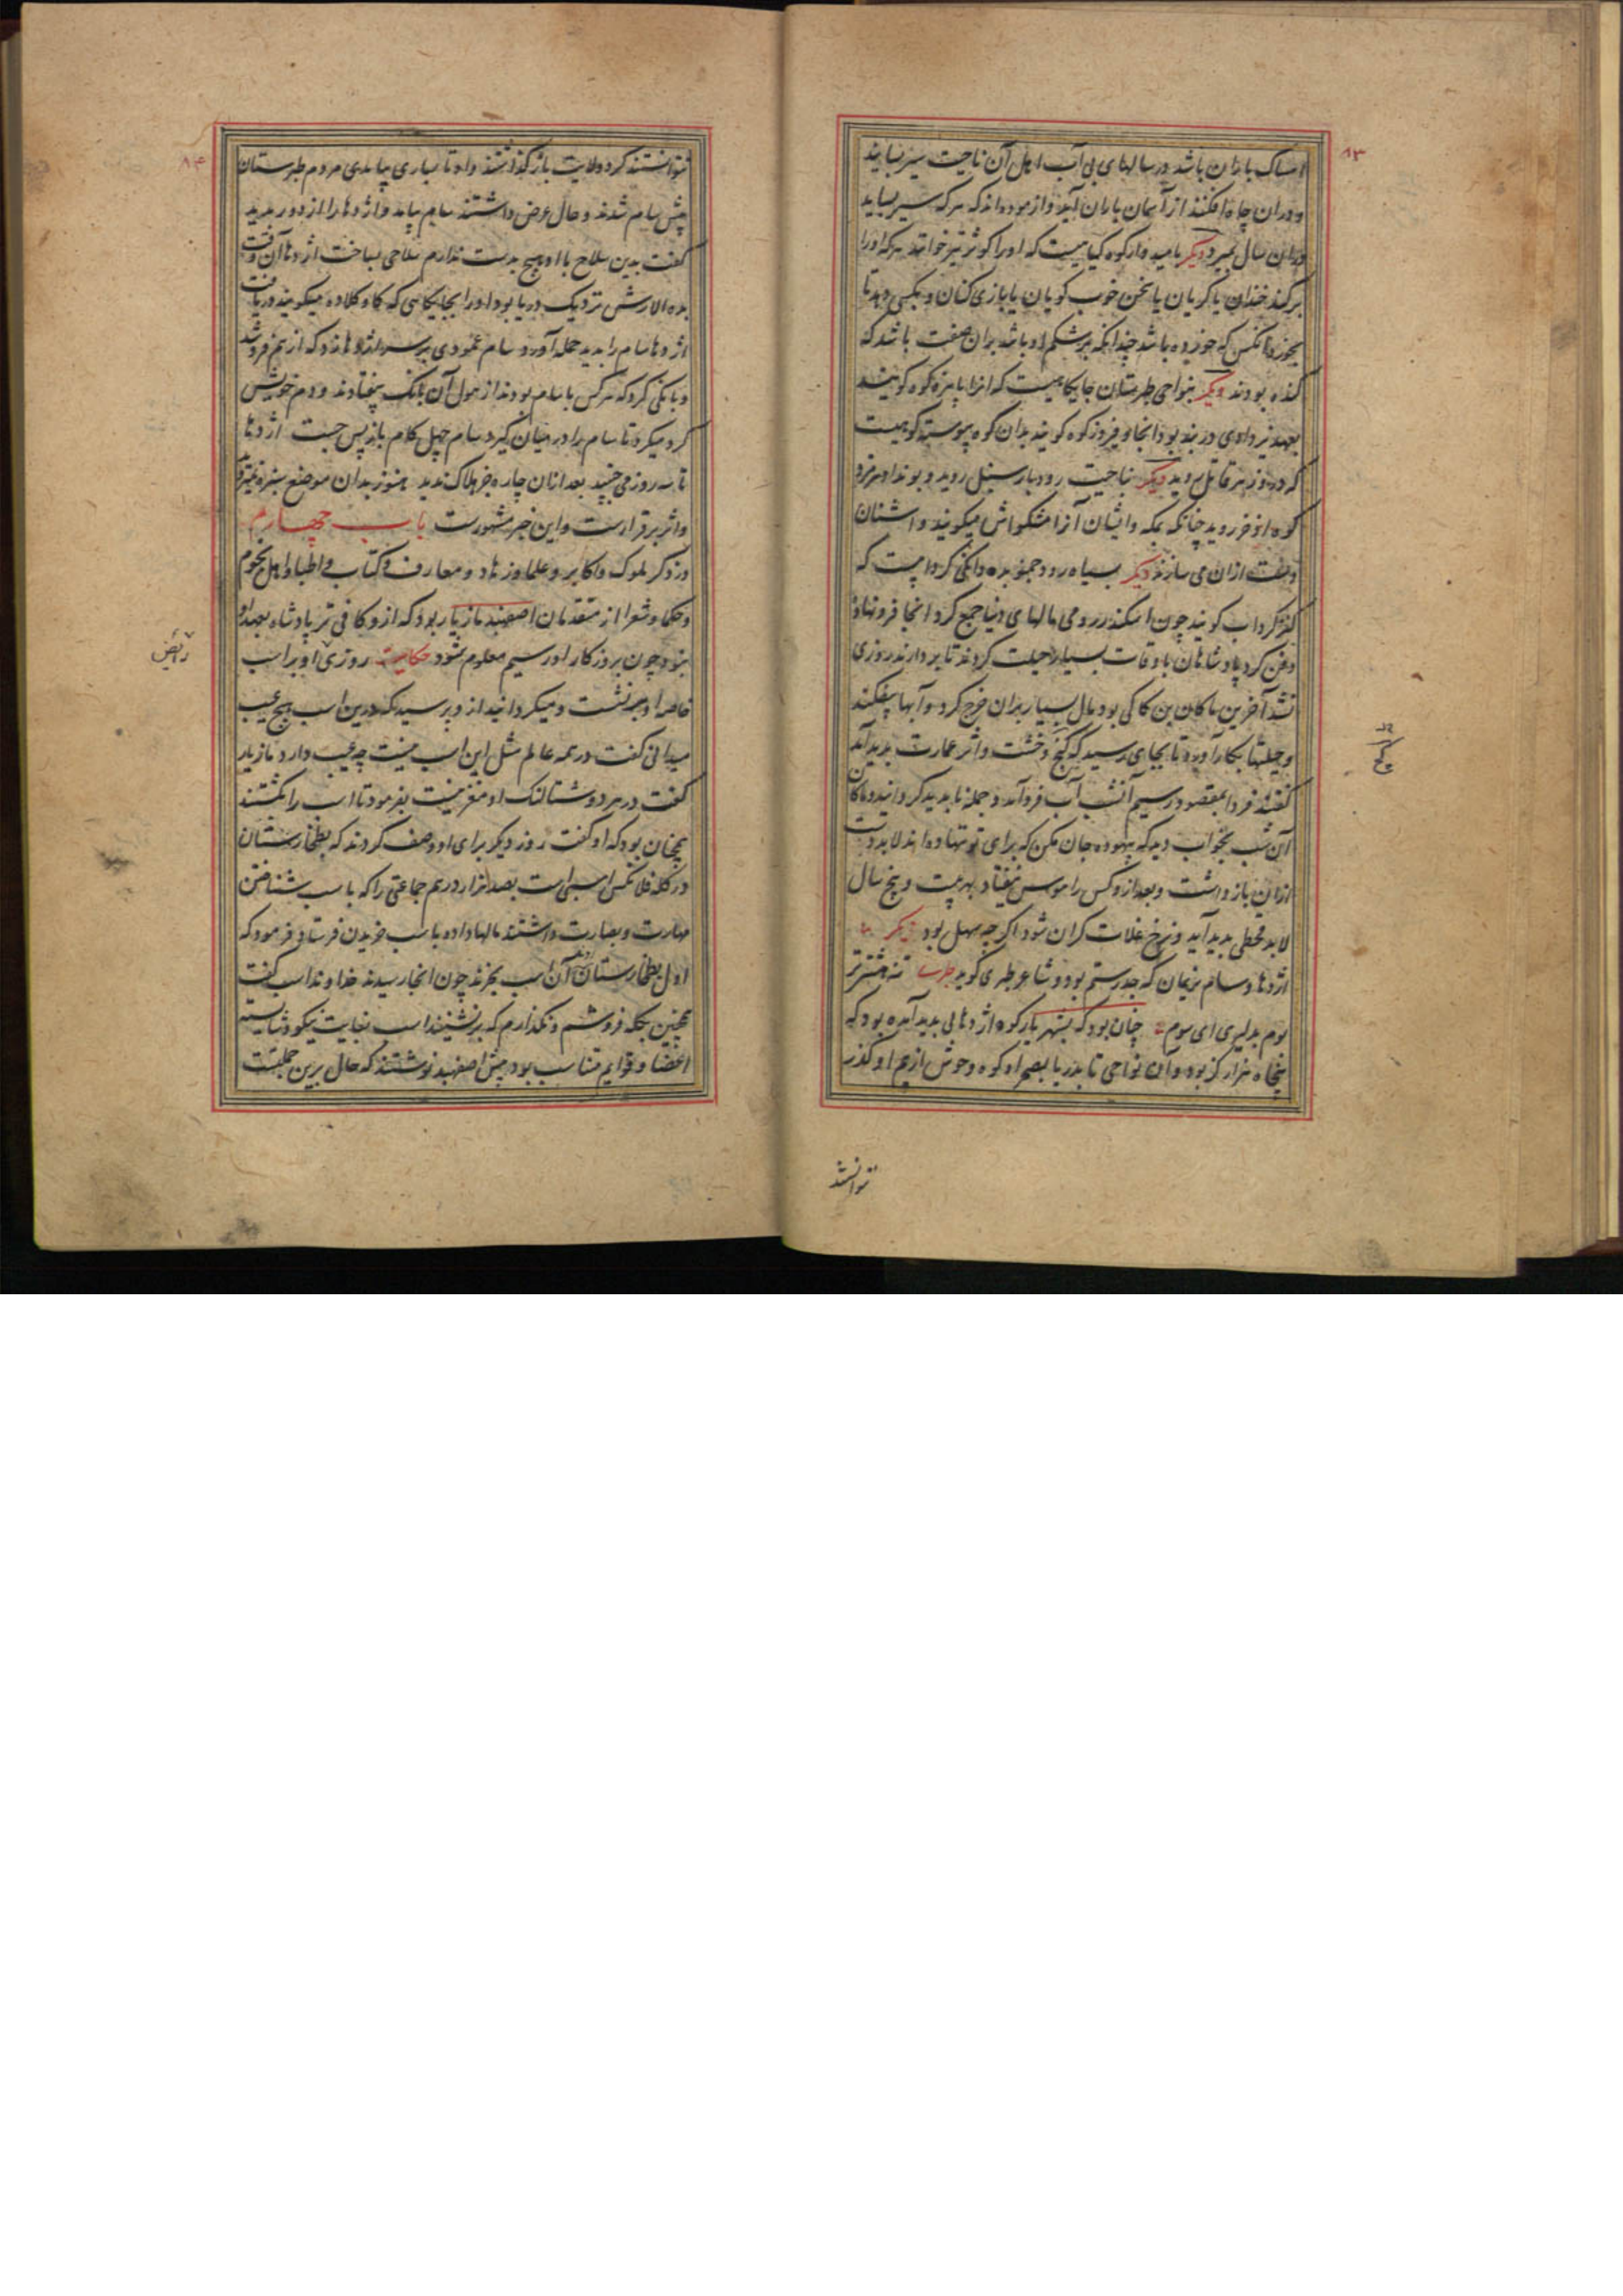 ۸۳
امساک باران باشد در سالهای بی آب اهل آن ناحیت سیر بسایند
و دران چاه افکنند از آسمان باران آید و ازموده اند که هر که سیر بساید
دران سال بمیرد دیگر بامیدوارکوه کیاهیست که اورا کوثر تیز خوانند هرکه اورا
برکند خندان یا کریان یا سخن خوب کویان یا بازی کنان و بکسی دهد تا
بخورد آنکس که خورده باشد چندانکه بر شکم او باشد بران صفت باشد که
کنده بودند دیگر بنواحی طبرستان جایکاهیست که انرا پایزه کوه کویند
بعهد یزدادی در بند بود آنجا و فیروزکوه کویند بدان کوه پیوسته کوهیست
که درو زهر قاتل روید دیگر بناحیت رودبار سنبل روید و بونداهرمزد
کوه اذخر روید چنانکه بمکه و ایشان آنرا مشکواش میکویند و اشنان
دیگر بسیاه رود جنوبده دانکی کردابیست که
کنز کرداب کویند چون اسکندر رومی مالهای دنیا جمع کرد آنجا فرونهاد
دفن کرد پادشاهان باوقات بسیار حیلت کردند تا بردارند روزی
نشد آخرین ماکان بن کاکی بود مال بسیار بران خرج کرد و آبها بیفکند
و حیلتها بکار آورد تا بجای رسید که کچ و خشت و اثر عمارت پدید آمد
کفتند فردا بمقصود رسیم آنشب آب فرو آمد و جمله ناپدید کردانید و ماکان
آن شب بخواب دید که بیهوده جان مکن که برای تو ننهاده اند لابد دست
ازان باز داشت و بعد ازو کس را هوس نیفتاد بهر بیست و پنج سال
لابد قحطی پدید آید و نرخ غلات کران شود اکر چه سهل بود دیگر
اژدها و سام نریمان که جد رستم بود و شاعر طبری کوید
بوم بدلیری ای سوم چنان بود که بشهریارکوه اژدهایی پدید آمده بود که
پنجاه هزار کز بود و آن نواحی تا بدریا بصحرا و کوه وحوش از بیم او کذر
کچ
نتوانستند
۸۴
نتوانستند کرد و ولایت بازکذاشتند و او تا بساری بیامدی مردم طبرستان
پیش سام شدند و حال عرض داشتند سام بیامد و اژدها را از دور بدید
کفت بدین سلاح با او هیچ بدست ندارم سلاحی بساخت اژدها آن وقت
بده الارش نزدیک دریا بود اورا بجایکاهی که کاوکلاده میکویند دریافت
اژدها سام را بدید حمله آورد سام عمودی بر سر اژدها زد که از هم فروشد
و بانکی کرد که هرکس با سام بودند از هول آن بانک بیفتادند و دم خویش
کرد میکرد تا سام را در میان کیرد سام چهل کام باز پس جست اژدها
تا سه روز می جنبید بعد ازان چاره جز هلاک ندید هنوز بدان موضع سبزه نمیروید
و اثر برقرارست و این خبر مشهورست باب چهارم
در ذکر ملوک و اکابر و علما و زهاد و معارف و کتاب و اطبا و اهل نجوم
و حکما و شعرا از متقدمان اصفهبد مازیار بود که ازو کافی تر پادشاه بعهد او
نبود چون بروزکار او رسیم معلوم شود حکایت روزی او بر اسب
خاصه او می نشست و میکردانید از و پرسید که درین اسب هیچ عیب
میدانی کفت در همه عالم مثل این اسب نیست چه عیب دارد مازیار
کفت در هر دو شتالنک او مغز نیست بفرمود تا اسب را بکشتند
همچنان بود که او کفت روز دیگر برای او وصف کردند که بطخارستان
در کله فلانکس اسبی است بصد هزار درم جماعتی را که باسب شناختن
مهارت و بصارت داشتند مالها داده باسب خریدن فرستاد و فرمود که
اول بطخارستان روند آن اسب بخرند چون آنجا رسیدند خداوند اسب کفت
همچنین بکله فروشم و نکذارم که برنشیند اسب بغایت نیکو و شایسته
اعضا و قوایم متناسب بود پیش اصفهبد نوشتند که حال برین جملتست
رایض